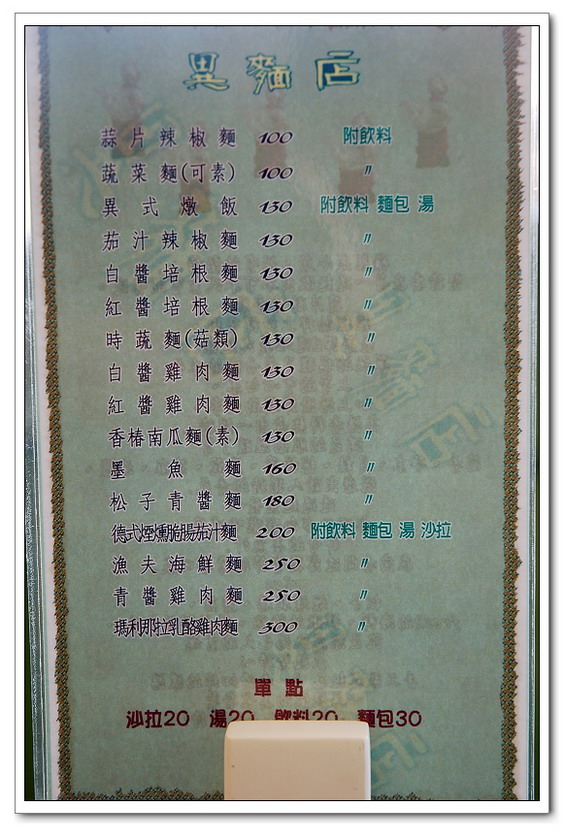 異麵店
蒜片辣椒麵 100 附飲料
蔬菜麵(可素) 100 〃
異式燉飯 130 附飲料 麵包 湯
茄汁辣椒麵 130 〃
白醬培根麵 130 〃
紅醬培根麵 130 〃
時蔬麵(菇類) 130 〃
白醬雞肉麵 130 〃
紅醬雞肉麵 130 〃
香椿南瓜麵(素) 130 〃
墨魚麵 160 〃
松子青醬麵 180 〃
德式煙燻脆腸茄汁麵 200 附飲料 麵包 湯 沙拉
漁夫海鮮麵 250 〃
青醬雞肉麵 250 〃
瑪利那拉乳酪雞肉麵 300 〃
單點
沙拉20 湯20 飲料20 麵包30